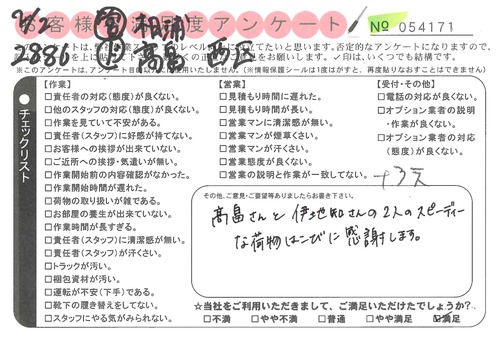 お客様満足度アンケート
№ 054171
7/2
2886
※このアンケートは、アンケート自体以外には使用いたしません。(※情報保護シールは1度はがすと、再度貼りなおすことはできません)
チェックリスト
【作業】
□責任者の対応(態度)が良くない。
□他のスタッフの対応(態度)が良くない。
□作業を見ていて不安がある。
□責任者(スタッフ)に好感が持てない。
□お客様への挨拶が出来ていない。
□ご近所への挨拶・気遣いが無い。
□作業開始前の内容確認がなかった。
□作業開始時間が遅れた。
□荷物の取り扱いが雑である。
□お部屋の養生が出来ていない。
□作業時間が長すぎる。
□責任者(スタッフ)に清潔感が無い。
□責任者(スタッフ)が汗くさい。
□トラックが汚い。
□梱包資材が汚い。
□運転が不安(下手)である。
□靴下の履き替えをしてない。
□スタッフにやる気がみられない。
【営業】
□見積もり時間に遅れた。
□見積もり時間が長い。
□営業マンに清潔感が無い。
□営業マンが煙草くさい。
□営業マンが汗くさい。
□営業態度が良くない。
□営業の説明と作業が一致してない。
【受付・その他】
□電話の対応が良くない。
□オプション業者の説明
・作業が良くない。
□オプション業者の対応
(態度)が良くない。
その他、ご意見・ご要望等ありましたらお書き下さい。
髙畠さんと伊地知さんの2人のスピーディー
な荷物はこびに感謝します。
☆当社をご利用いただきまして、ご満足いただけたでしょうか?
□不満 □やや不満 □普通 □やや満足 ☑満足